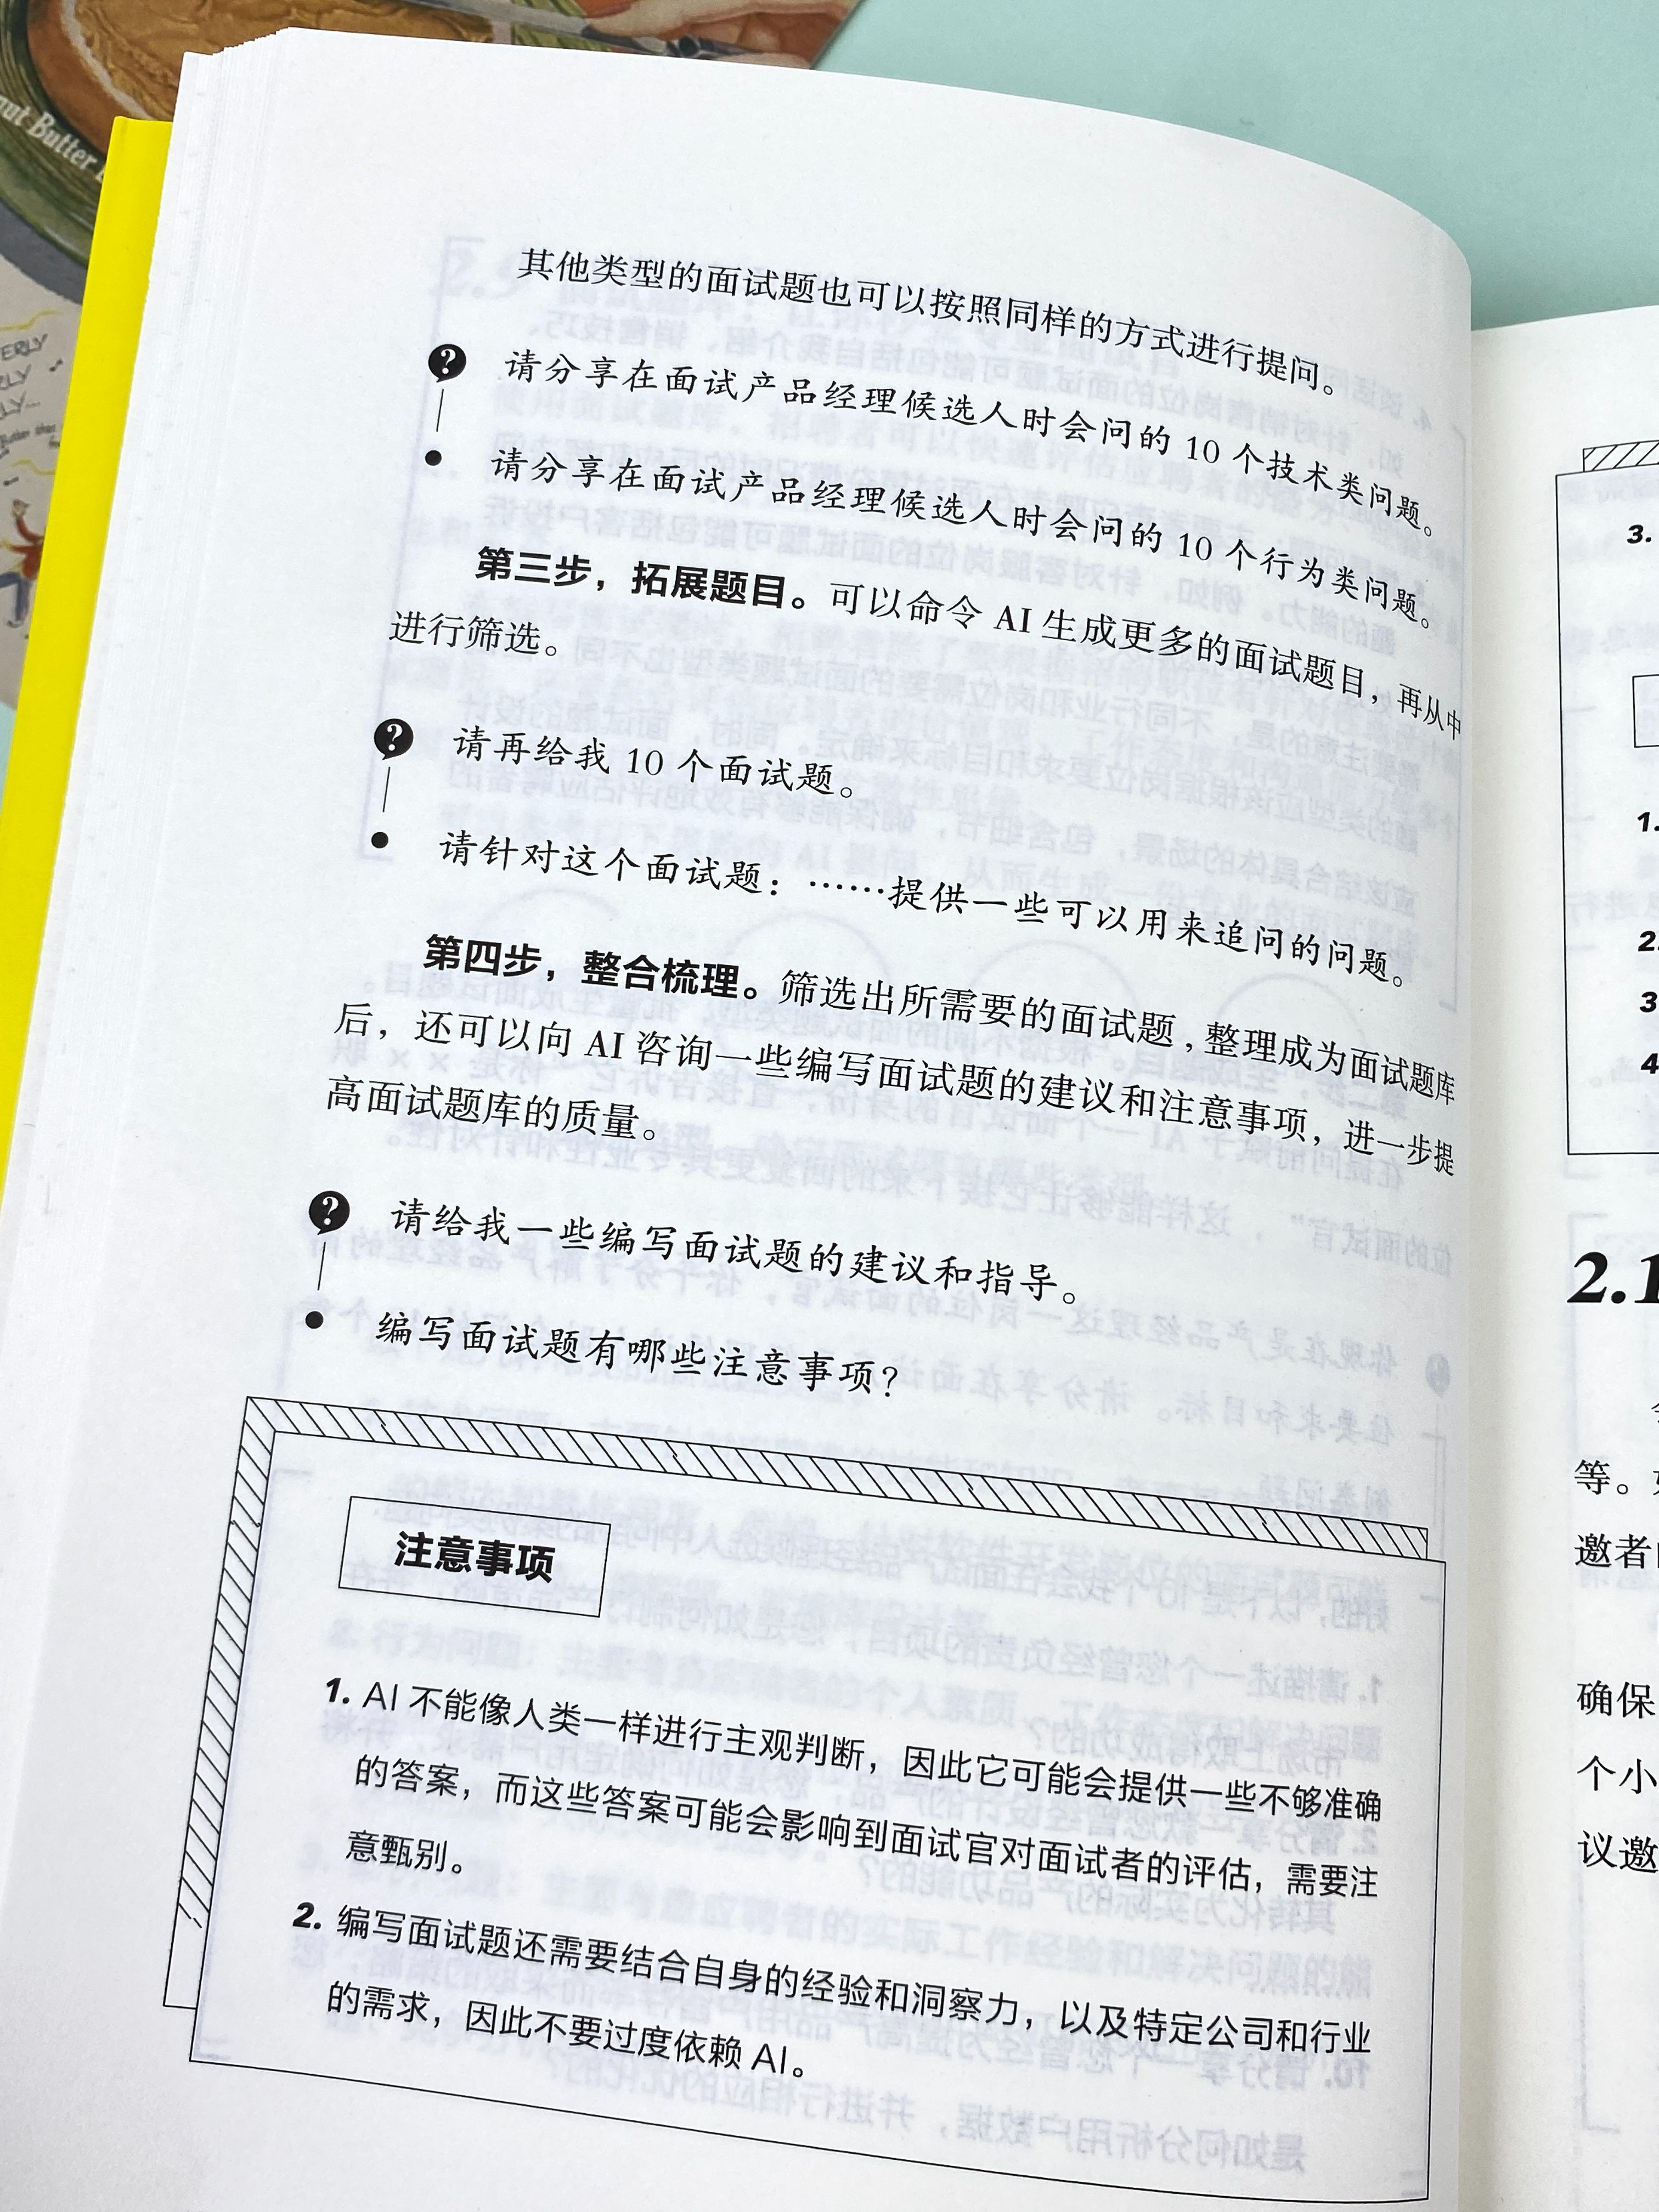 其他类型的面试题也可以按照同样的方式进行提问。
? 请分享在面试产品经理候选人时会问的 10 个技术类问题。
● 请分享在面试产品经理候选人时会问的 10 个行为类问题。
第三步，拓展题目。可以命令 AI 生成更多的面试题目，再从中
进行筛选。
? 请再给我 10 个面试题。
● 请针对这个面试题：……提供一些可以用来追问的问题。
第四步，整合梳理。筛选出所需要的面试题，整理成为面试题库
后，还可以向 AI 咨询一些编写面试题的建议和注意事项，进一步提
高面试题库的质量。
? 请给我一些编写面试题的建议和指导。
● 编写面试题有哪些注意事项？
注意事项
1. AI 不能像人类一样进行主观判断，因此它可能会提供一些不够准确
的答案，而这些答案可能会影响到面试官对面试者的评估，需要注
意甄别。
2. 编写面试题还需要结合自身的经验和洞察力，以及特定公司和行业
的需求，因此不要过度依赖 AI。
3.
1.
2.
3
4
2.1
等。
邀者
确保
个小
议邀
Butter